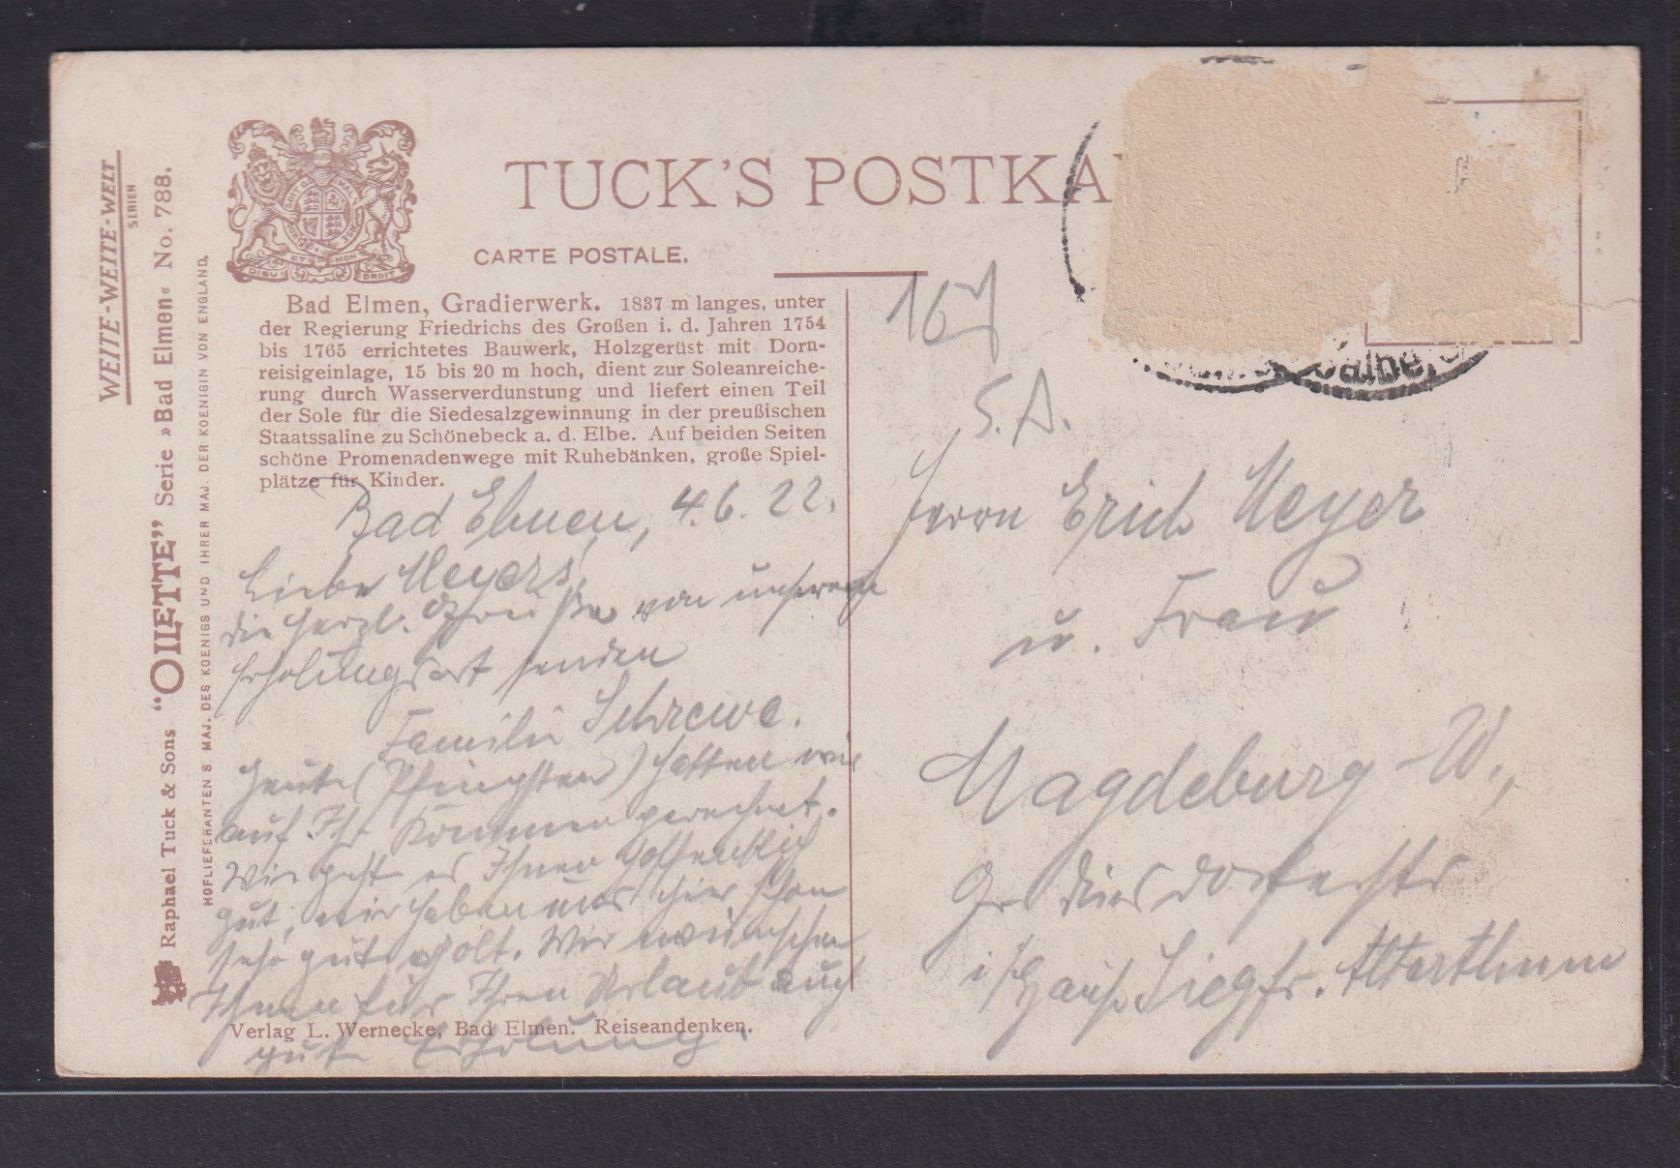 WEITE-WEITE-WELT
SERIEN
Raphael Tuck & Sons “OILETTE” Serie »Bad Elmen« No. 788.
HOFLIEFERANTEN S MAJ. DES KOENIGS UND IHRER MAJ. DER KOENIGIN VON ENGLAND.
DIEU ET MON DROIT
TUCK'S POSTKA
CARTE POSTALE.
Bad Elmen, Gradierwerk. 1837 m langes, unter
der Regierung Friedrichs des Großen i. d. Jahren 1754
bis 1765 errichtetes Bauwerk, Holzgerüst mit Dorn-
reisigeinlage, 15 bis 20 m hoch, dient zur Soleanreiche-
rung durch Wasserverdunstung und liefert einen Teil
der Sole für die Siedesalzgewinnung in der preußischen
Staatssaline zu Schönebeck a. d. Elbe. Auf beiden Seiten
schöne Promenadenwege mit Ruhebänken, große Spiel-
plätze für Kinder.
Bad Elmen, 4.6.22.
Liebe Meyers,
die herzl. Grüße von unserem
Erholungsort senden
Familie Schrewe.
Heute (Pfingsten) hatten wir
auf Ihr Kommen gerechnet.
Wie geht es Ihnen hoffentlich
gut, wir haben uns hier schon
sehr gut erholt. Wir wünschen
Ihnen für Ihren Urlaub auch
gute Erholung.
Verlag L. Wernecke, Bad Elmen. Reiseandenken.
167
S. A.
Herrn Erich Meyer
u. Frau
Magdeburg-W.,
Gr. Diesdorferstr
i/Hause Siegfr. Alterthum